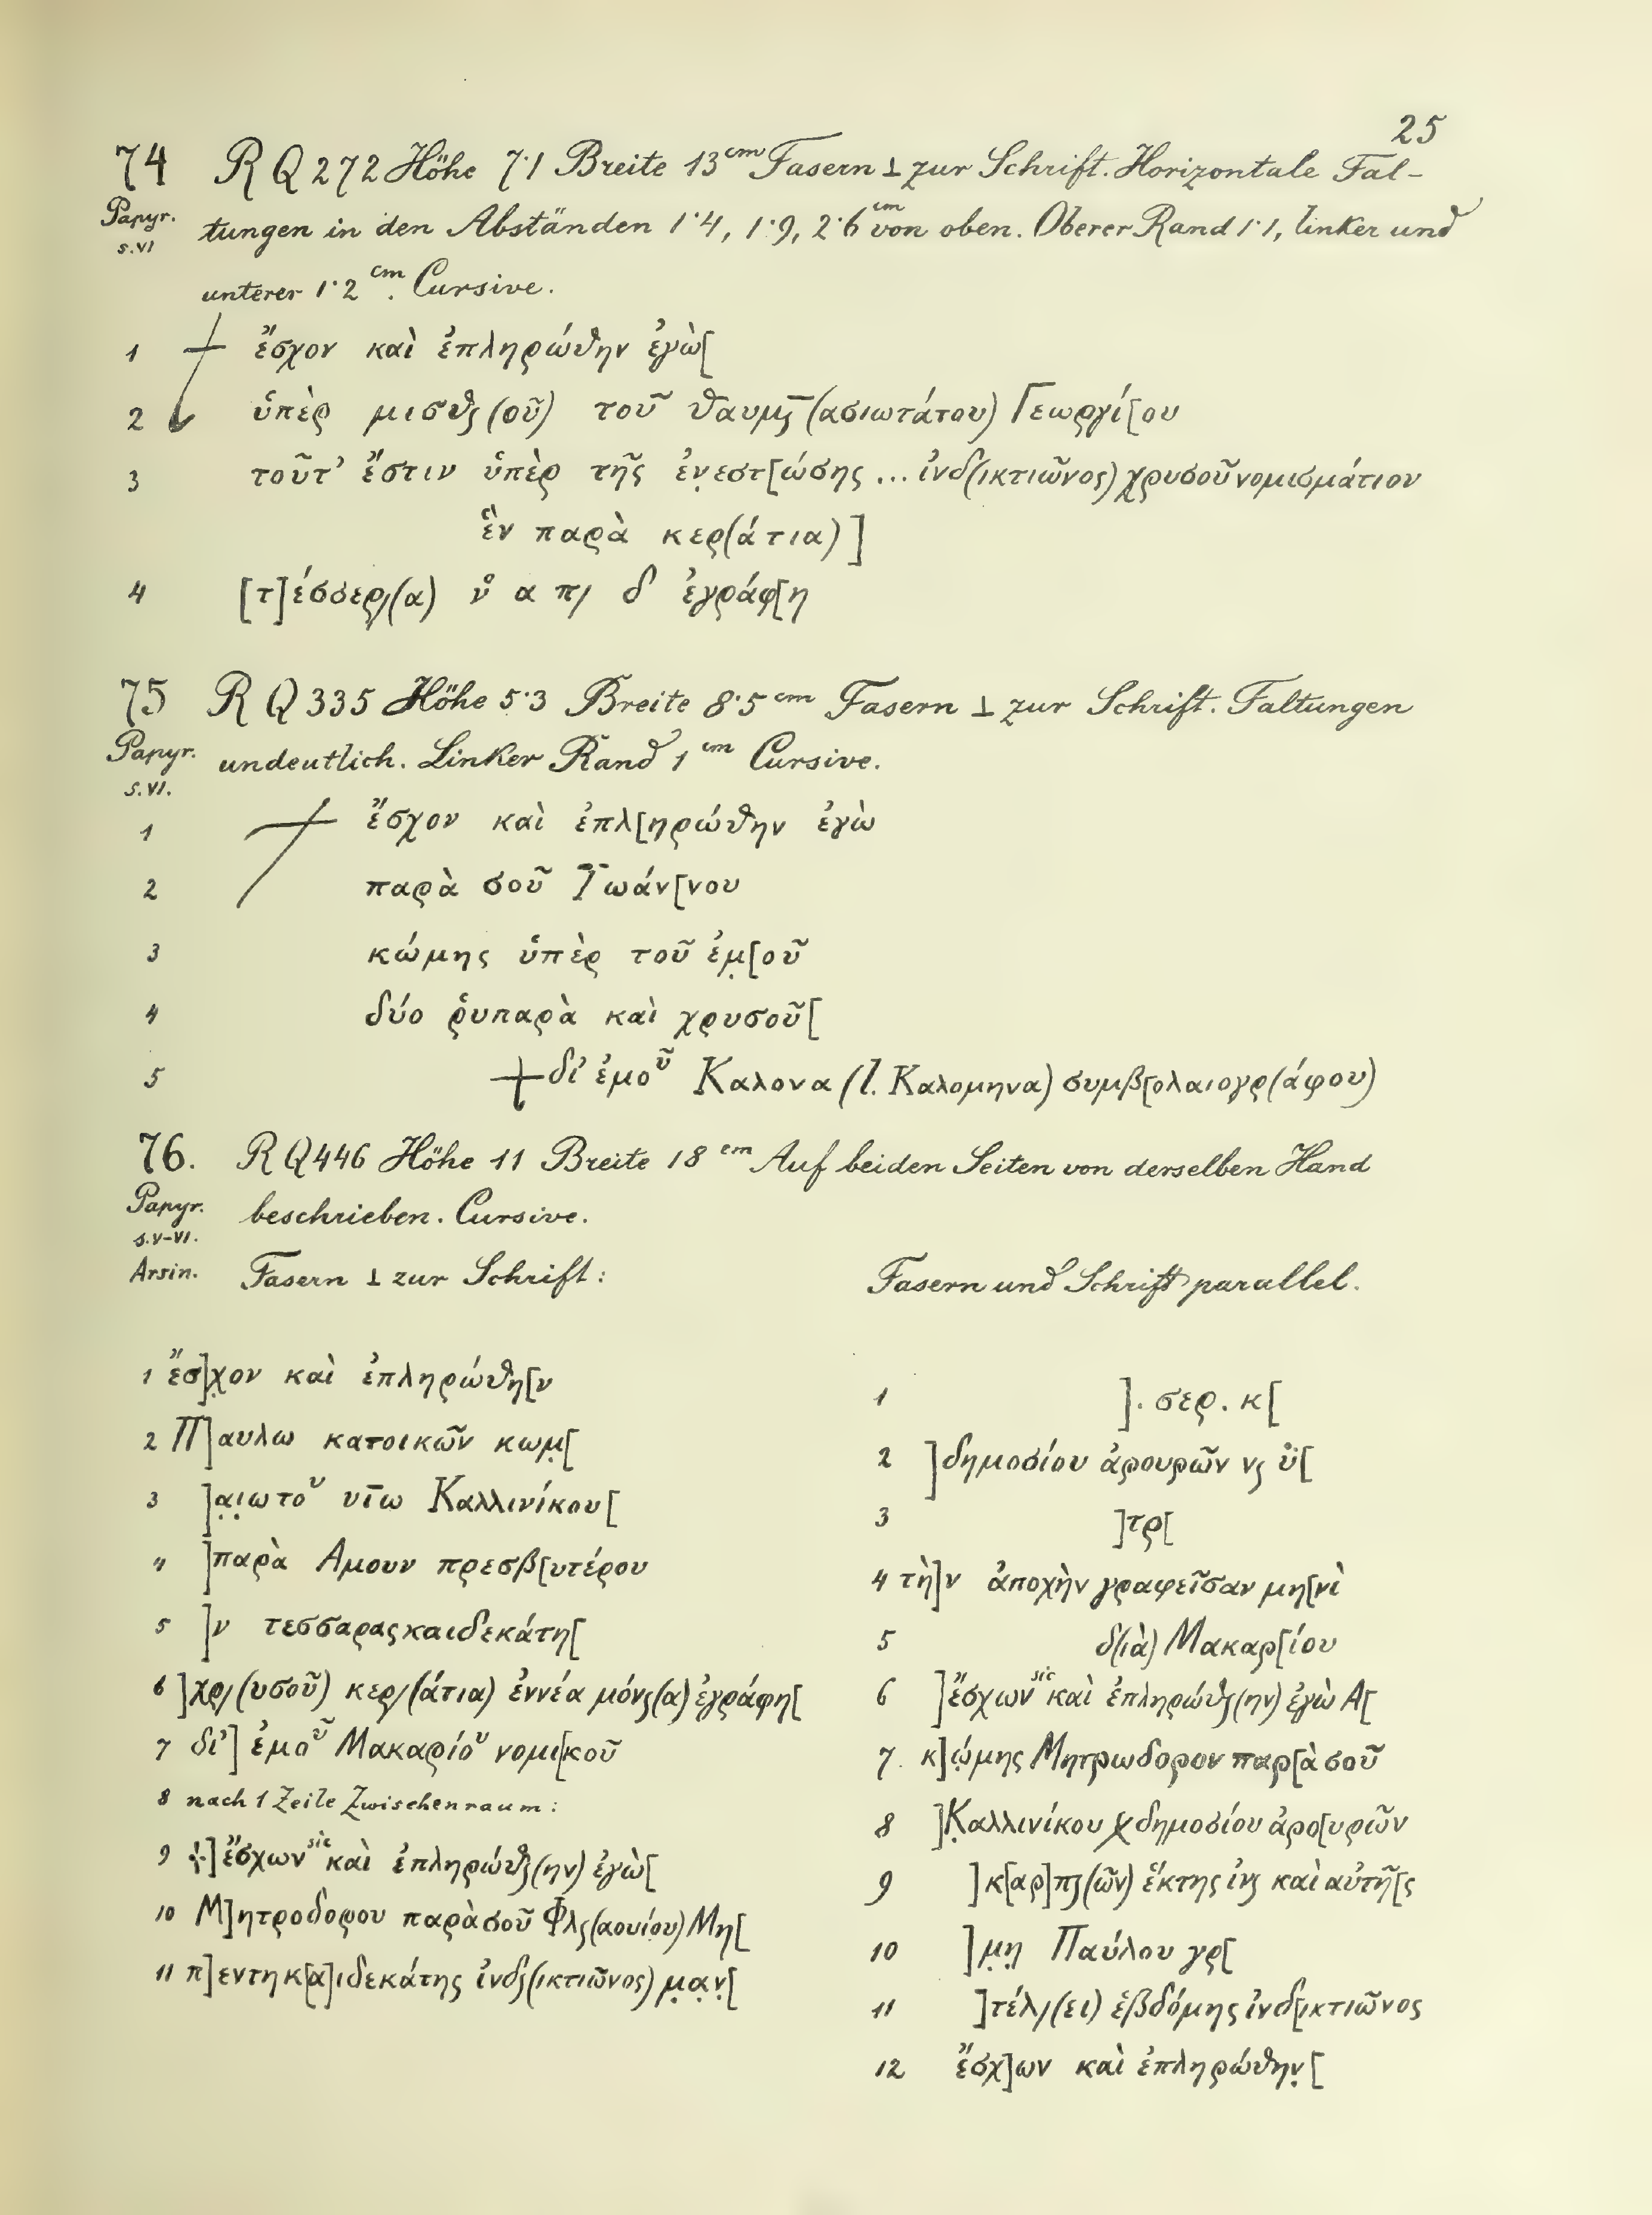 25
74 R Q 272 Höhe 7·1 Breite 13 cm Fasern ⊥ zur Schrift. Horizontale Fal-
Papyr. tungen in den Abständen 1·4, 1·9, 2·6 cm von oben. Oberer Rand 1·1, linker und
s.VI
unterer 1·2 cm. Cursive.
1 ἔσχον καὶ ἐπληρώθην ἐγὼ[
2 ὑπὲρ μισθʃ(οῦ) τοῦ θαυμʃ(ασιωτάτου) Γεωργί[ου
3 τοῦτ’ ἔστιν ὑπὲρ τῆς ἐνεστ[ώσης ... ἰνδ(ικτιῶνος) χρυσοῦ νομισμάτιον
ἓν παρὰ κερ(άτια)]
4 [τ]έσσερ/(α) ν̊ α π/ δ ἐγράφ[η
75 R Q 335 Höhe 5·3 Breite 8·5 cm Fasern ⊥ zur Schrift. Faltungen
Papyr. undeutlich. Linker Rand 1 cm Cursive.
s.VI.
1 ἔσχον καὶ ἐπλ[ηρώθην ἐγὼ
2 παρὰ σοῦ Ϊωάν[νου
3 κώμης ὑπὲρ τοῦ ἐμ̣[οῦ
4 δύο ῥυπαρὰ καὶ χρυσοῦ[
5 + δι’ ἐμοῦ Καλονα (l. Καλομηνα) συμβ[ολαιογρ(άφου)
76. R Q 446 Höhe 11 Breite 18 cm Auf beiden Seiten von derselben Hand
Papyr. beschrieben. Cursive.
s.V-VI.
Arsin. Fasern ⊥ zur Schrift:
1 ἔσ]χ̣ον καὶ ἐπληρώθη[ν
2 Π]αυλω κατοικῶν κωμ̣[
3 ]α̣ι̣ωτοῦ υϊω Καλλινίκου[
4 ]παρὰ Αμουν πρεσβ[υτέρου
5 ]ν τεσσαραςκαιδεκάτη[
6 ]χρ/(υσοῦ) κερ/(άτια) ἐννέα μόνʃ(α) ἐγράφη[
7 δι’] ἐμοῦ Μακαρίου νομι[κοῦ
8 nach 1 Zeile Zwischenraum:
9 +] ἔσχων sic καὶ ἐπληρώθʃ(ην) ἐγὼ[
10 Μ]ητροδορου παρὰ σοῦ Φλʃ(αουίου) Μη[
11 π]εντηκ[α]ιδεκάτης ἰνδʃ(ικτιῶνος) μ̣α̣ν̣[
Fasern und Schrift parallel.
1 ]. σερ. κ[
2 ]δημοσίου ἀρουρῶν νʃ ὑ̈[
3 ]τρ[
4 τὴ]ν ἀποχὴν γραφεῖσαν μη[νὶ
5 δ(ιὰ) Μακαρ[ίου
6 ]ἔσχων sic καὶ ἐπληρώθʃ(ην) ἐγὼ Α[
7. κ]ώ̣μης Μητρωδορον παρ[ὰ σοῦ
8 ]Κ̣αλλινίκου χ δημοσίου ἀρο[υριῶν
9 ]κ[αρ]πʃ(ῶν) ἕκτης ἰνʃ καὶ αὐτῆ[ς
10 ]μ̣η̣ Παύλου γρ[
11 ]τέλ/(ει) ἑβδόμης ἰνδ[ικτιῶνος
12 ἔσχ]ων καὶ ἐπληρώθην̣[